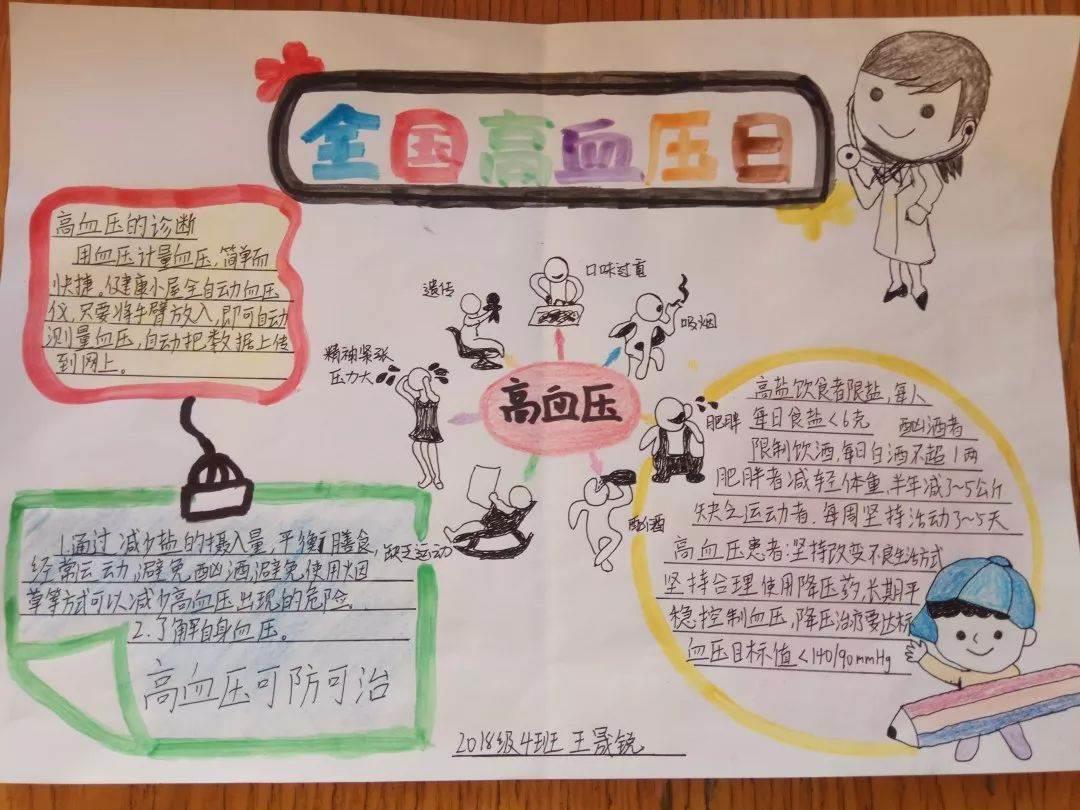 全国高血压日
高血压的诊断
用血压计量血压,简单而
快捷。健康小屋全自动血压
仪,只要将手臂放入,即可自动
测量血压,自动把数据上传
到网上。
遗传
口味过重
吸烟
精神紧张
压力大
高血压
肥胖
缺乏运动
酗酒
1.通过减少盐的摄入量,平衡膳食,
经常运动,避免酗酒,避免使用烟
草等方式可以减少高血压出现的危险。
2.了解自身血压。
高血压可防可治
高盐饮食者限盐,每人
每日食盐<6克 酗酒者
限制饮酒,每日白酒不超1两
肥胖者减轻体重,半年减3~5公斤
缺乏运动者,每周坚持活动3~5天
高血压患者:坚持改变不良生活方式
坚持合理使用降压药,长期平
稳控制血压,降压治疗要达标
血压目标值<140/90mmHg
2018级4班 王晟锐